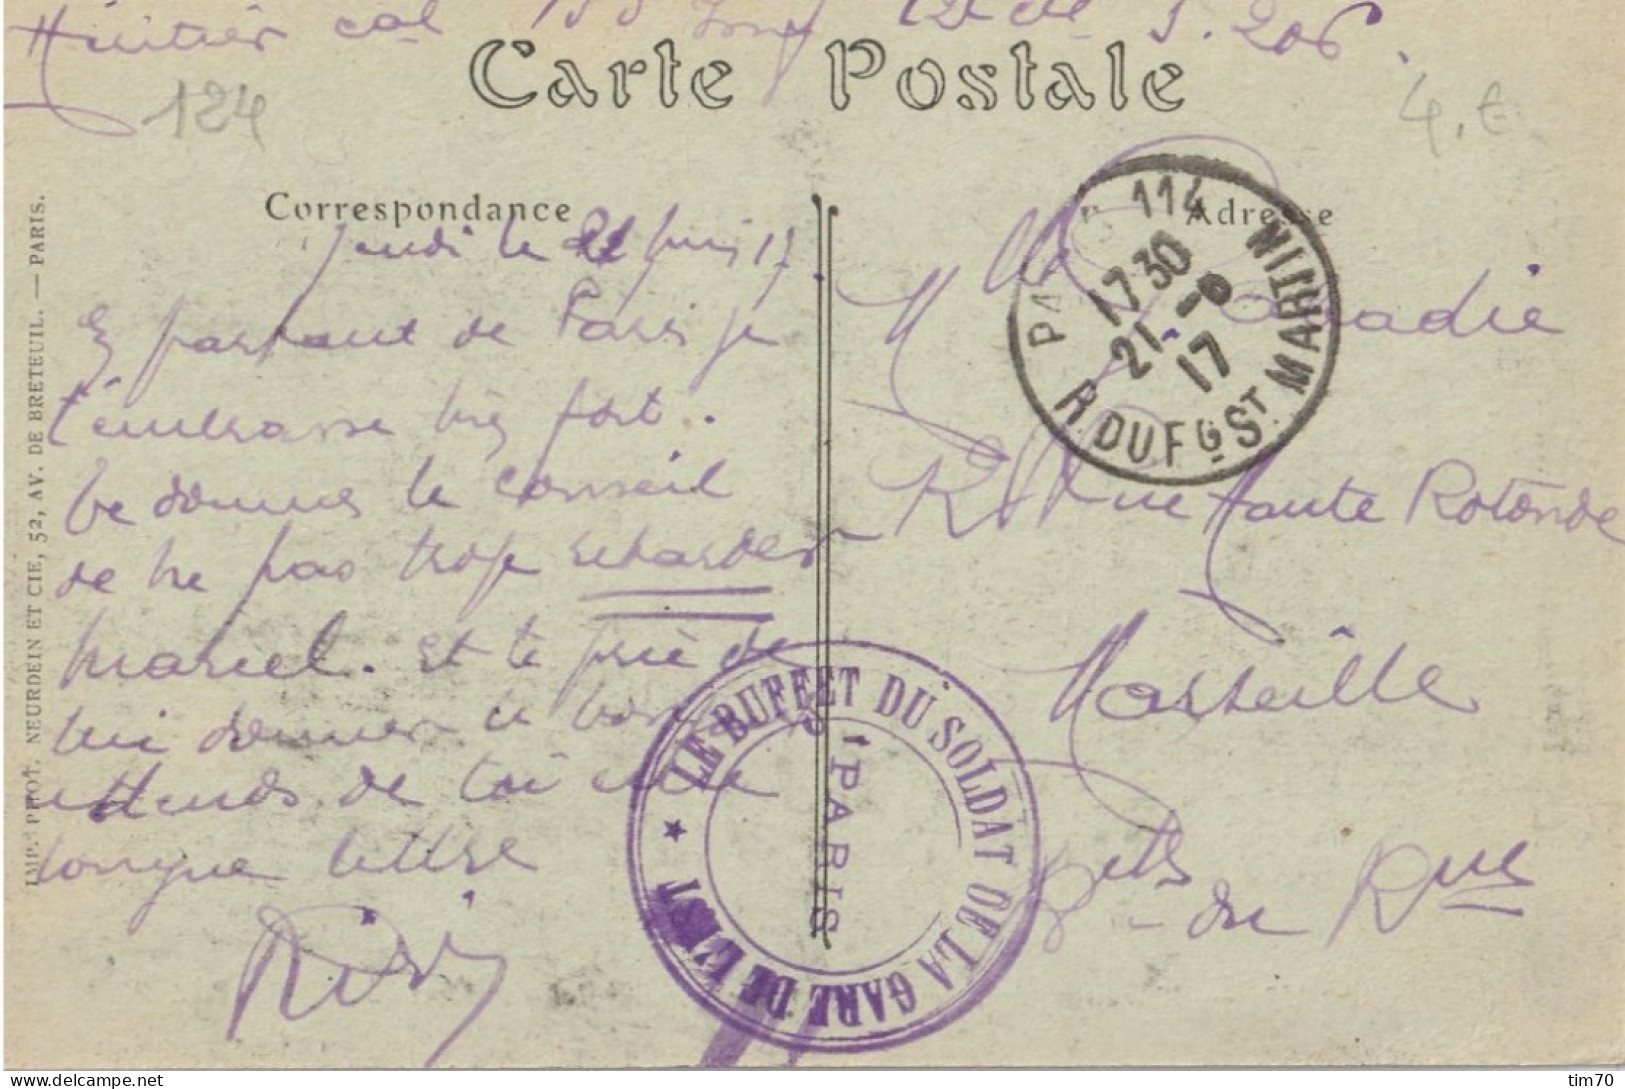 124
Carte Postale
4. €
Correspondance
Adresse
PARIS 114
17 30
21 - 6
17
R. DU Fg St MARTIN
Jeudi le 21 juin 17.
En partant de Paris je
t'embrasse bien fort.
te donne le conseil
de ne pas trop retarder
Marcel. et te prie de
lui donner le bon
attends de toi une
longue lettre
Riri
Rue Haute Rotonde
Marseille
Bches du Rhne
★ LE BUFFET DU SOLDAT DE LA GARE DE L'EST
PARIS
IMP. PHOT. NEURDEIN ET CIE, 52, AV. DE BRETEUIL. — PARIS.
tim70